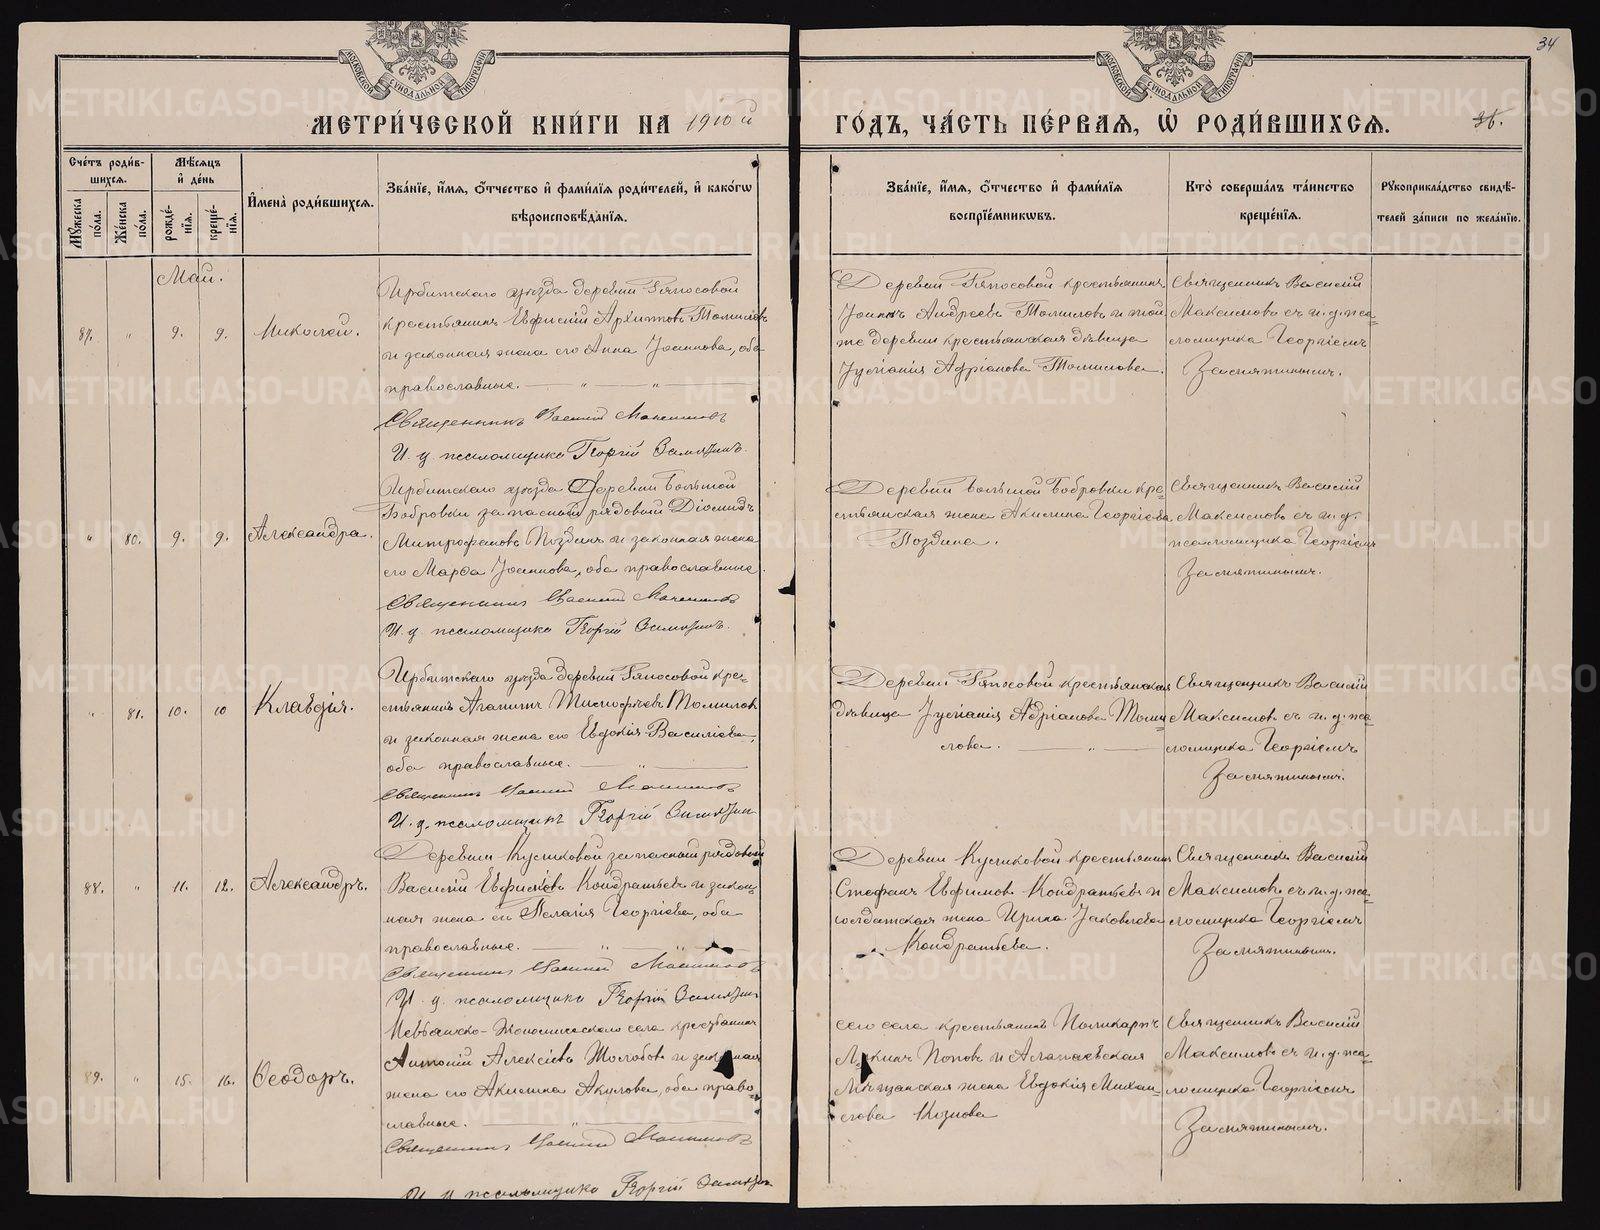 34
МОСКОВСКОЙ СѴНОДАЛЬНОЙ ТИПОГРАФІИ
МОСКОВСКОЙ СѴНОДАЛЬНОЙ ТИПОГРАФІИ
МЕТРИ́ЧЕСКОЙ КНИ́ГИ НА 1910й
ГО́ДЪ, ЧА́СТЬ ПЕ́РВАѦ, Ѡ҆ РОДИ́ВШИХСѦ.
36.
Сче́тъ роди́в-
шихсѧ.
Мѣ́сѧцъ
и҆ де́нь
Мꙋ́жеска
по́ла.
Же́нска
по́ла.
рожде́-
нїѧ.
креще́-
нїѧ.
И҆мена̀ роди́вшихсѧ.
Зва́нїе, и҆́мѧ, ѻ҆́тчество и҆ фами́лїѧ роди́телей, и҆ како́гѡ
вѣроисповѣ́данїѧ.
Зва́нїе, и҆́мѧ, ѻ҆́тчество и҆ фами́лїѧ
воспрїе́мниковъ.
Кто̀ соверша́лъ та́инство
креще́нїѧ.
Рꙋкоприкла́дство свидѣ́-
телей за́писи по жела́нїю.
Май.
87. " 9. 9. Николай.
Ирбитскаго уѣзда деревни Ряпосовой
крестьянинъ Евфимій Архиповъ Томиловъ
и законная жена его Анна Іоаннова, оба
православные. — " — " —
Священникъ Василій Максимовъ
И. д. псаломщика Георгій Замятинъ.
Деревни Ряпосовой крестьянинъ
Іоаннъ Андреевъ Томиловъ и той
же деревни крестьянская дѣвица
Іуліанія Адріанова Томилова.
Священникъ Василій
Максимовъ съ и. д. пса-
ломщика Георгіемъ
Замятинымъ.
" 80. 9. 9. Александра.
Ирбитскаго уѣзда Деревни Большой
Бобровки запасный рядовой Діомидъ
Митрофановъ Поздинъ и законная жена
его Марѳа Іоаннова, оба православные.
Священникъ Василій Максимовъ
И. д. псаломщика Георгій Замятинъ.
Деревни Большой Бобровки кре-
стьянская жена Акилина Георгіева
Поздина.
Священникъ Василій
Максимовъ съ и. д.
псаломщика Георгіемъ
Замятинымъ.
" 81. 10. 10 Клавдія.
Ирбитскаго уѣзда деревни Ряпосовой кре-
стьянинъ Агапитъ Тимофѣевъ Томиловъ
и законная жена его Евдокія Василіева,
оба православные. — " —
Священникъ Василій Максимовъ
И. д. псаломщика Георгій Замятинъ
Деревни Ряпосовой крестьянская
дѣвица Іуліанія Адріанова Томи-
лова. — " —
Священникъ Василій
Максимовъ съ и. д. пса-
ломщика Георгіемъ
Замятинымъ.
88. " 11. 12. Александръ.
Деревни Куликовой запасный рядовой
Василій Евфимовъ Кондратьевъ и закон-
ная жена его Пелагія Георгіева, оба
православные. — " — "
Священникъ Василій Максимовъ
И. д. псаломщика Георгій Замятинъ
Деревни Куликовой крестьянинъ
Стефанъ Евфимовъ Кондратьевъ и
солдатская жена Ирина Іаковлева
Кондратьева.
Священникъ Василій
Максимовъ съ и. д. пса-
ломщика Георгіемъ
Замятинымъ.
89. " 15. 16. Ѳеодоръ.
Невьянско-Экономическаго села крестьянинъ
Антоній Алексіевъ Жолобовъ и законная
жена его Акилина Акилова, оба право-
славные. — "
Священникъ Василій Максимовъ
И. д. псаломщика Георгій Замятинъ
сего села крестьянинъ Поликарпъ
Лукинъ Поповъ и Алапаевская
Мѣщанская жена Евдокія Михаи-
лова
Священникъ Василій
Максимовъ съ и. д. пса-
ломщика Георгіемъ
Замятинымъ.
METRIKI.GASO-URAL.RU